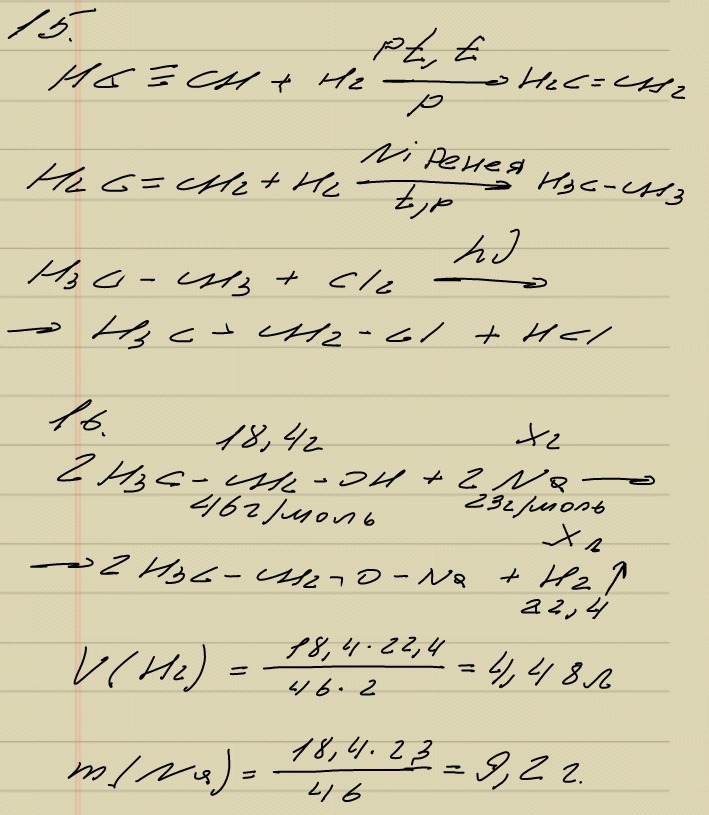 15.
Pt, t
HC ≡ CH + H₂ ⟶ H₂C = CH₂
p
Ni Ренея
H₂C = CH₂ + H₂ ⟶ H₃C - CH₃
t, p
hν
H₃C - CH₃ + Cl₂ ⟶
⟶ H₃C - CH₂ - Cl + HCl
16.
18,4г xг
2 H₃C - CH₂ - OH + 2 Na ⟶
46г/моль 23г/моль
x л
⟶ 2 H₃C - CH₂ - O - Na + H₂ ↑
22,4
V(H₂) = 18,4 · 22,4 / 46 · 2 = 4,48 л
m(Na) = 18,4 · 23 / 46 = 9,2 г.